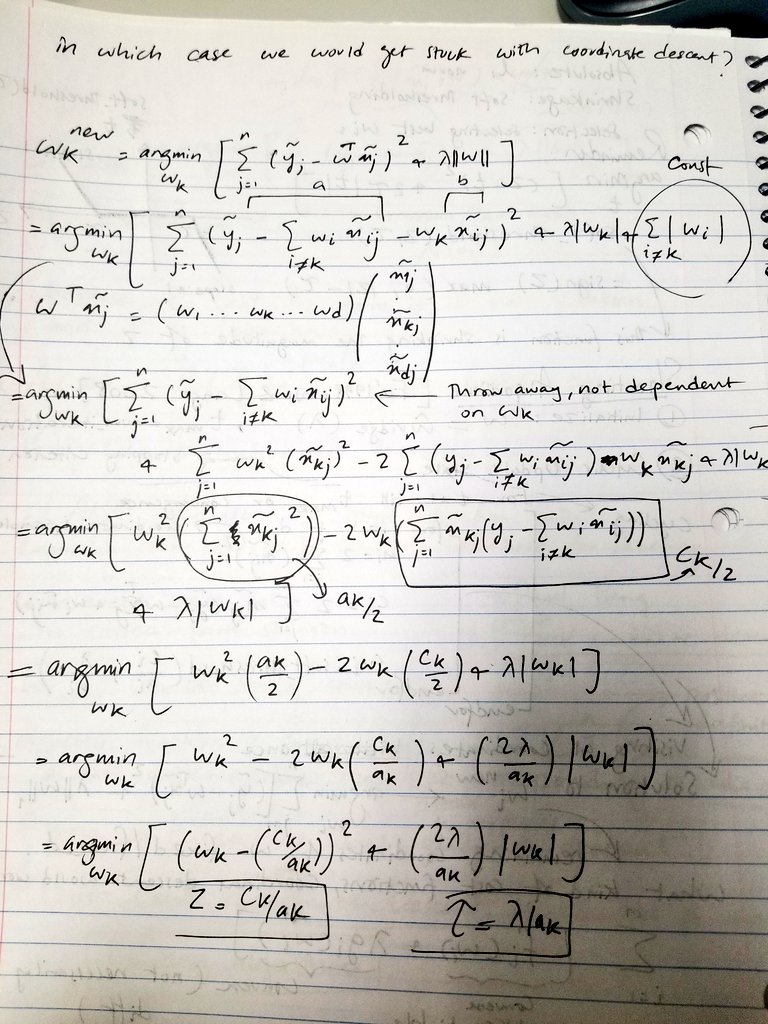 in which case we would get stuck with coordinate descent?
w_k^new = argmin_{w_k} [ Σ_{j=1}^n (ỹ_j - w^T x̃_j)^2 + λ||w|| ]
a b const
= argmin_{w_k} [ Σ_{j=1}^n (ỹ_j - Σ_{i≠k} w_i x̃_ij - w_k x̃_ij)^2 + λ|w_k| + Σ_{i≠k} |w_i|
w^T x̃_j = (w_1 ... w_k ... w_d) ( x̃_1j . x̃_kj . x̃_dj )
= argmin_{w_k} [ Σ_{j=1}^n (ỹ_j - Σ_{i≠k} w_i x̃_ij)^2 ← Throw away, not dependent
on w_k
+ Σ_{j=1}^n w_k^2 (x̃_kj)^2 - 2 Σ_{j=1}^n (y_j - Σ_{i≠k} w_i x̃_ij) w_k x̃_kj + λ|w_k
= argmin_{w_k} [ w_k^2 ( Σ_{j=1}^n x̃_kj^2 ) - 2w_k ( Σ_{j=1}^n x̃_kj (y_j - Σ_{i≠k} w_i x̃_ij))
c_k/2
+ λ|w_k| ] a_k/2
= argmin_{w_k} [ w_k^2 (a_k/2) - 2w_k (c_k/2) + λ|w_k| ]
= argmin_{w_k} [ w_k^2 - 2w_k (c_k/a_k) + (2λ/a_k) |w_k| ]
= argmin_{w_k} [ (w_k - (c_k/a_k))^2 + (2λ/a_k) |w_k| ]
z = c_k/a_k τ = λ/a_k